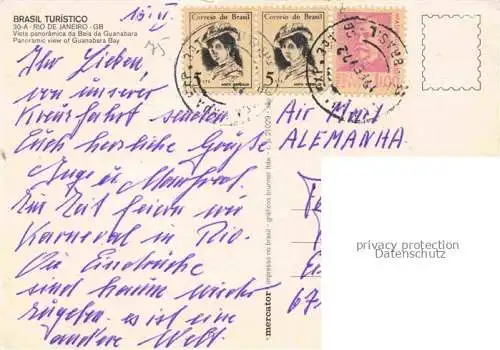 BRASIL TURÍSTICO
30-A - RIO DE JANEIRO - GB
Vista panorâmica da Baia de Guanabara
Panoramic view of Guanabara Bay
Ihr Lieben,
von unserer
Kreuzfahrt senden
Euch herzliche Grüße
Inge u. Manfred.
Zur Zeit feiern wir
Karneval in Rio.
Die Eindrücke
sind kaum wieder
zugeben. es ist eine
andere Welt.
Correio do Brasil
5
Correio do Brasil
5
Air Mail
ALEMANHA.
67
mercator
impresso no brasil - gráficos brunner ltda.
privacy protection
Datenschutz